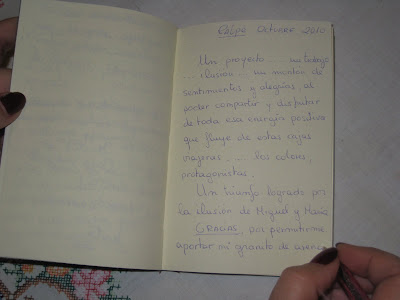 Caspe Octubre 2010
Un proyecto... un trabajo
... ilusion... un montón de
sentimientos y alegrías, al
poder compartir y disfrutar
de toda esa energía positiva
que fluye de estas cajas
viajeras... las cobres,
protagonistas.
Un triunfo logrado por
la ilusión de Miguel y María
GRACIAS, por permitirme
aportar mi granito de arena